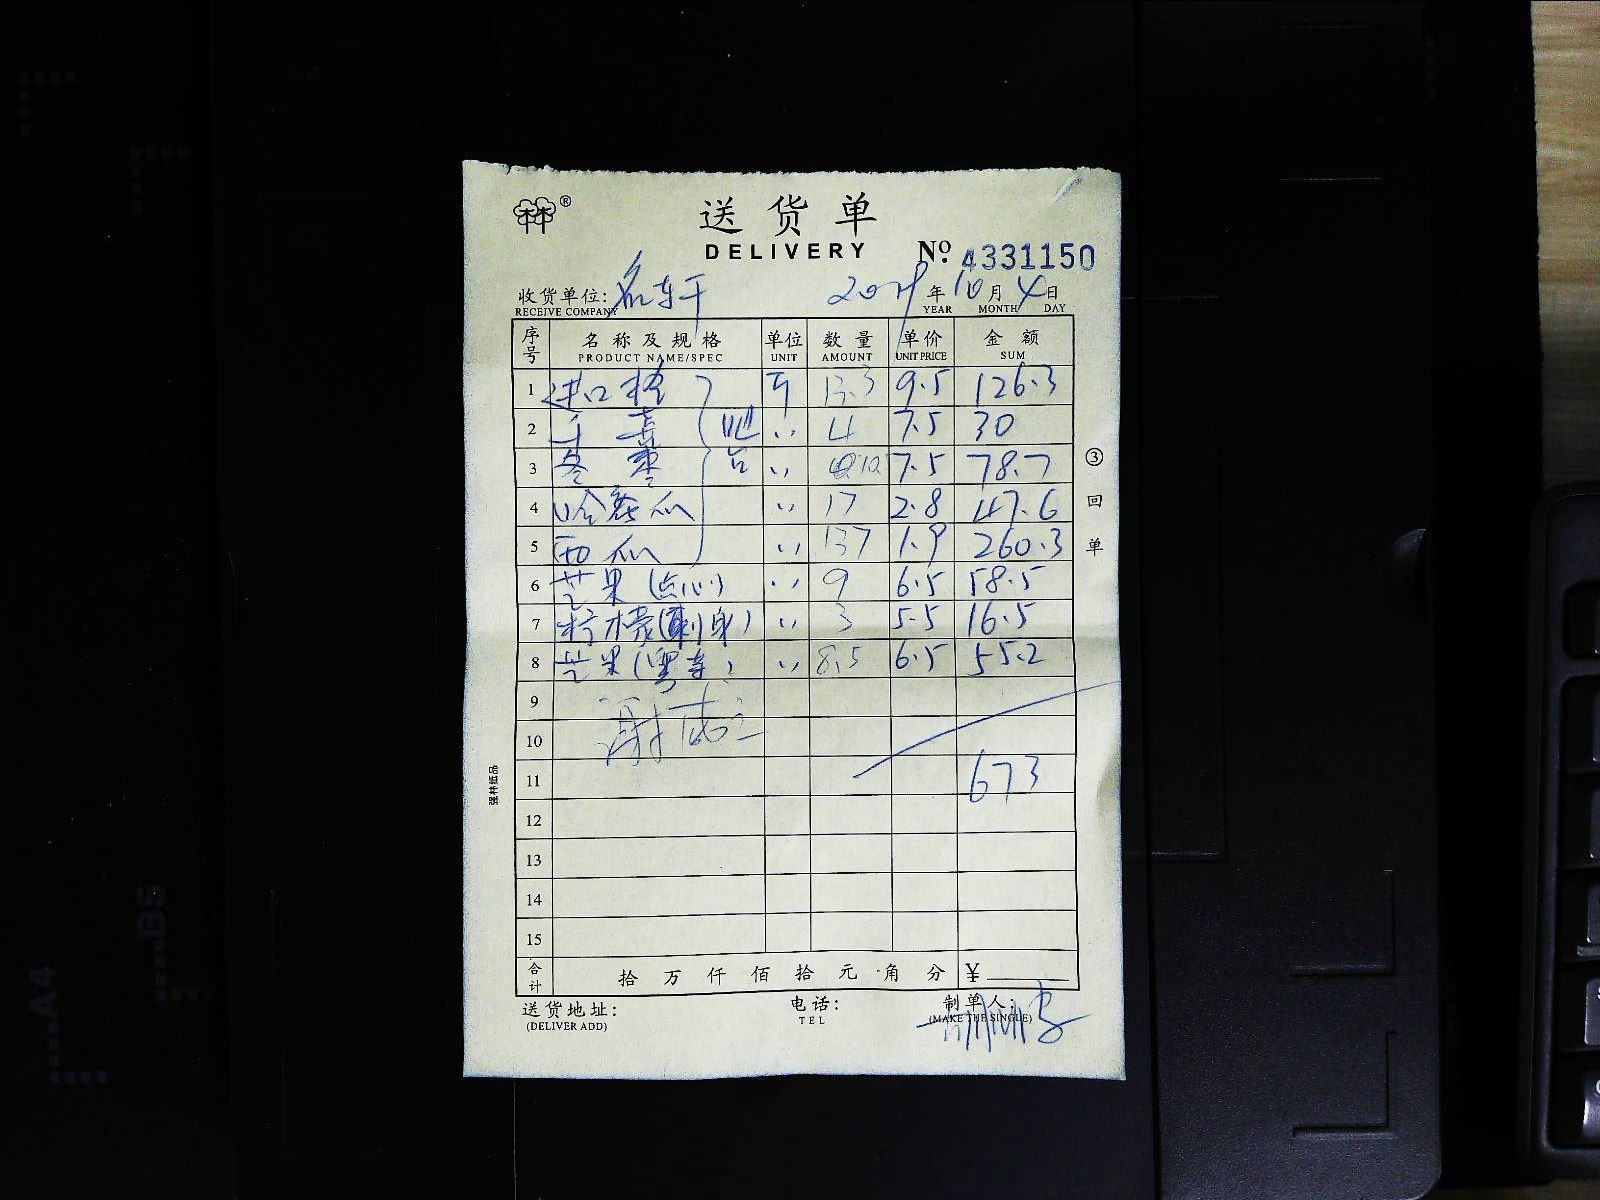 林®
送货单
DELIVERY
№ 4331150
收货单位: 年 10 月 4 日
RECEIVE COMPANY YEAR MONTH DAY
序号 名称及规格 单位 数量 单价 金额
PRODUCT NAME/SPEC UNIT AMOUNT UNIT PRICE SUM
1 进口橙 13.3 9.5 126.3
2 吧 〃 4 7.5 30
3 冬枣 台 〃 7.5 78.7
4 哈密瓜 〃 17 2.8 47.6
5 西瓜 〃 137 1.9 260.3
6 芒果(点心) 〃 9 6.5 58.5
7 柠檬(刺身) 〃 3 5.5 16.5
8 芒果( ) 〃 8.5 6.5 55.2
9
10
11 673
12
13
14
15
合计 拾 万 仟 佰 拾 元 角 分 ¥
送货地址: 电话: 制单人:
(DELIVER ADD) TEL (MAKE THE SINGLE)
③回单
强林纸品
A4
B5